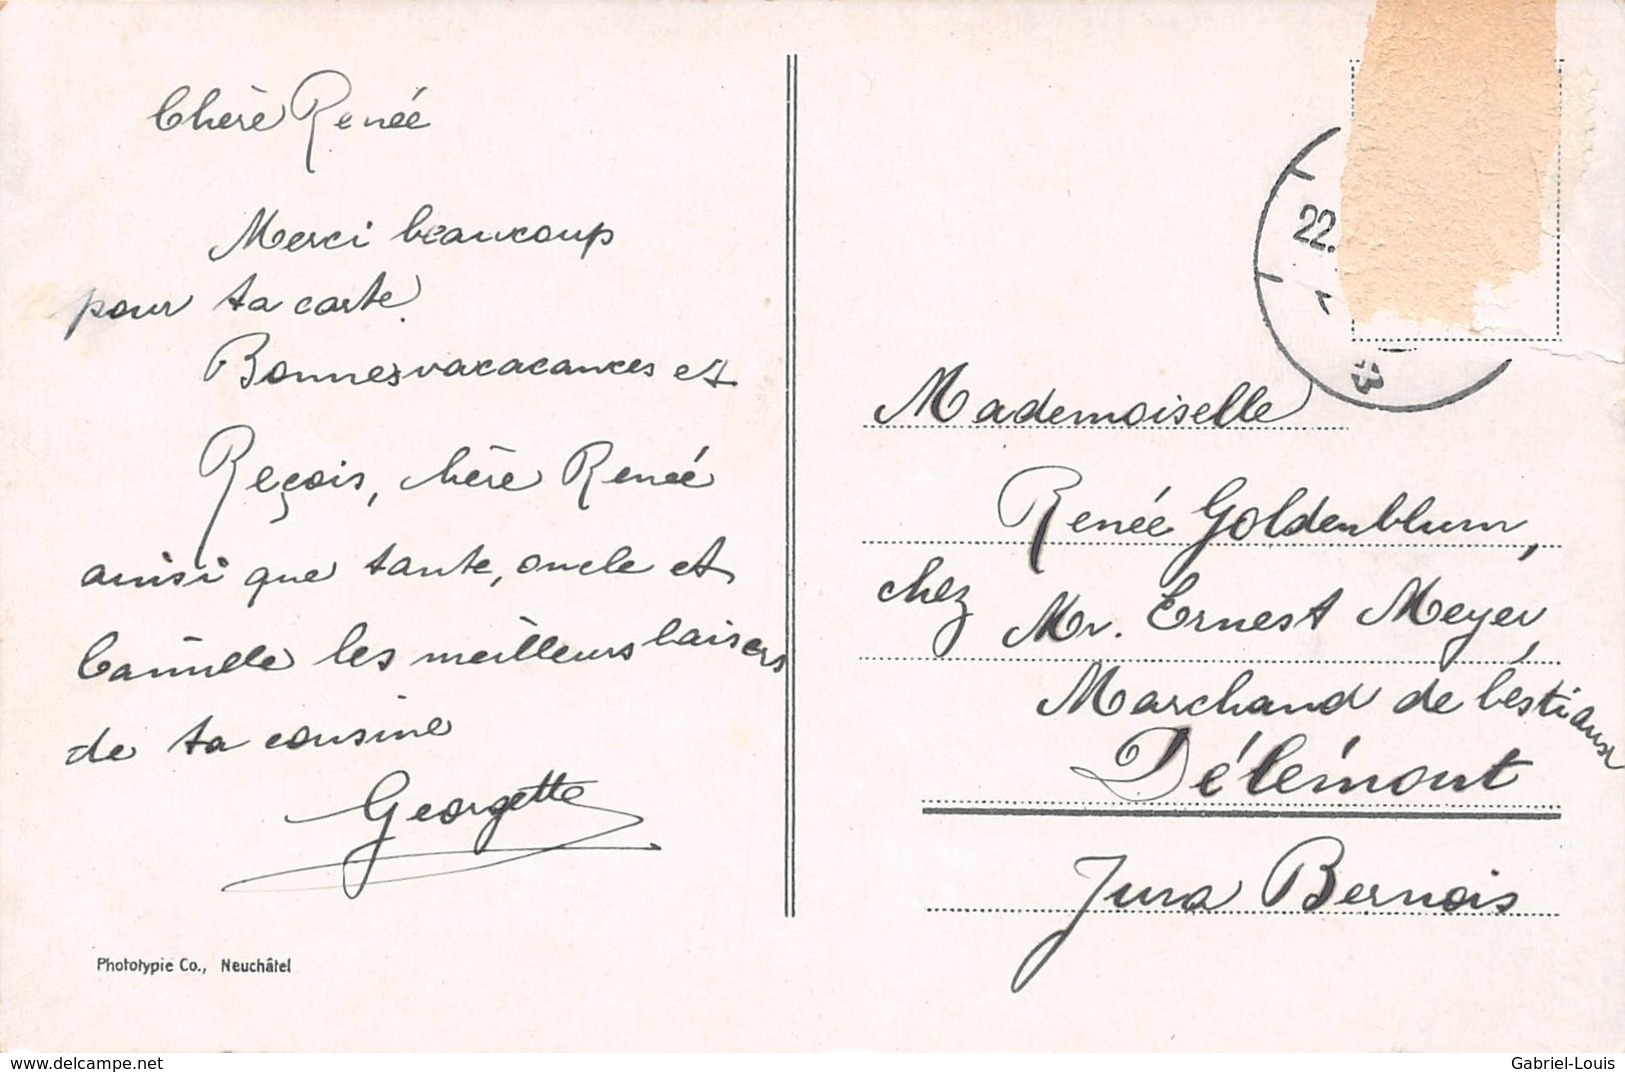 Chère Renée
Merci beaucoup
pour ta carte.
Bonnes vacacances et
Reçois, chère Renée
ainsi que tante, oncle et
Camille les meilleurs baisers
de ta cousine
Georgette
Phototypie Co., Neuchâtel
22.
Mademoiselle
Renée Goldenblum,
chez Mr. Ernest Meyer,
Marchand de bestiaux
Délémont
Jura Bernois
www.delcampe.net
Gabriel-Louis